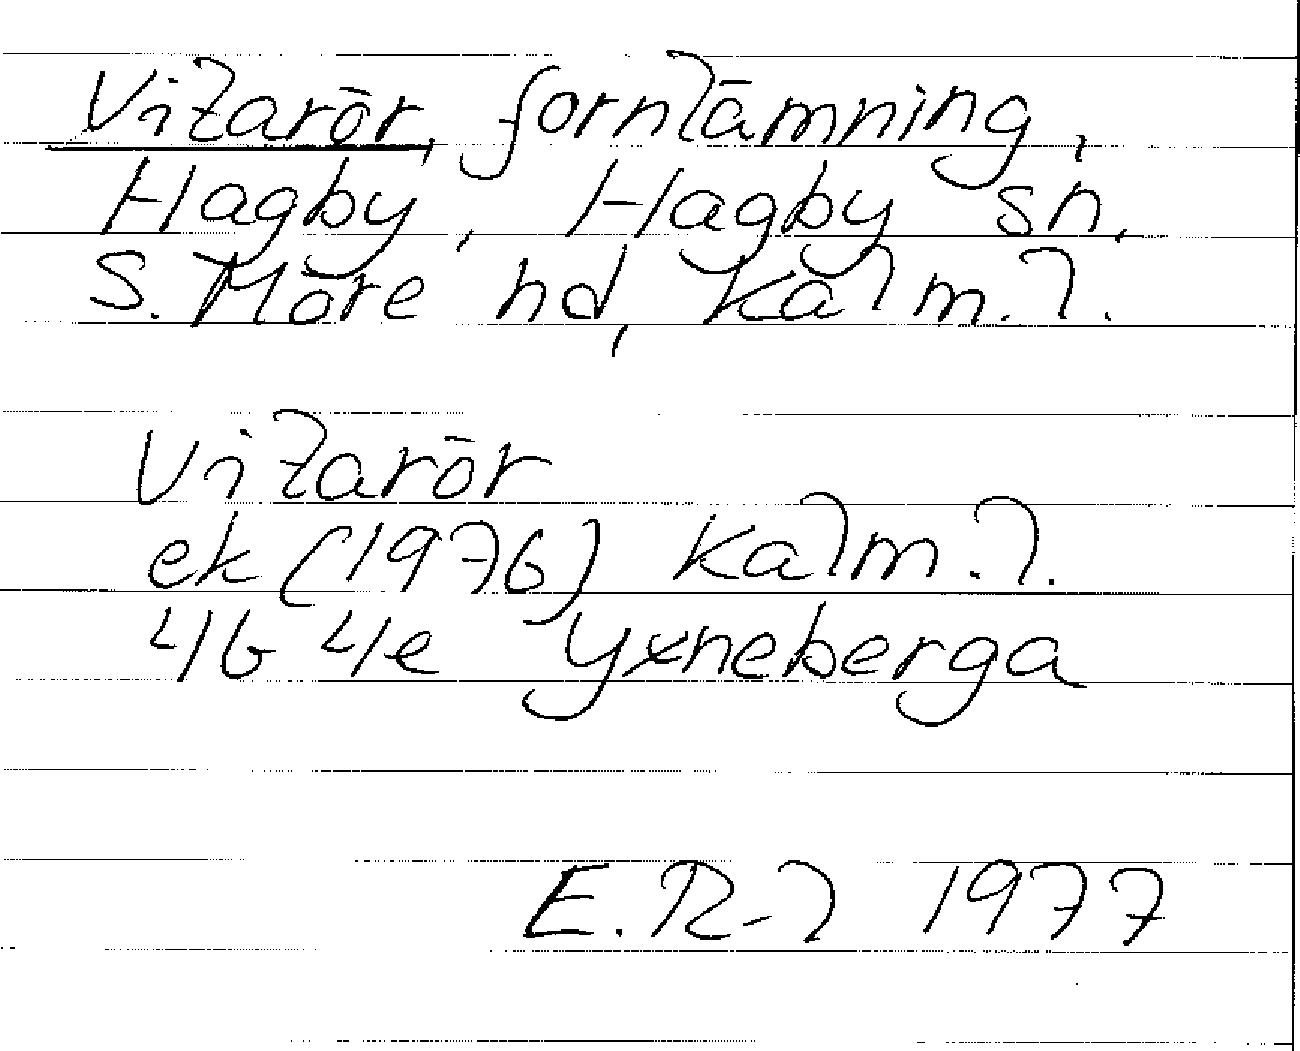 Vitarör, fornlämning,
Hagby, Hagby sn,
S. Möre hd, Kalm. l.
Vitarör
ek (1976) Kalm. l.
4G 4e Yxneberga
E. R-l 1977